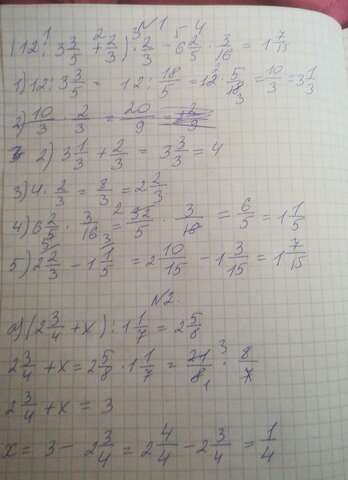 N1
(12 : 3 3/5 + 2/3) · 2/3 - 6 2/5 · 3/16 = 1 7/15
1) 12 : 3 3/5 = 12 : 18/5 = 12 · 5/18 = 10/3 = 3 1/3
2) 10/3 · 2/3 = 20/9 =
2) 3 1/3 + 2/3 = 3 3/3 = 4
3) 4 · 2/3 = 8/3 = 2 2/3
4) 6 2/5 · 3/16 = 32/5 · 3/16 = 6/5 = 1 1/5
5) 2 2/3 - 1 1/5 = 2 10/15 - 1 3/15 = 1 7/15
N2.
а) (2 3/4 + x) : 1 1/7 = 2 5/8
2 3/4 + x = 2 5/8 · 1 1/7 = 21/8 · 8/7
2 3/4 + x = 3
x = 3 - 2 3/4 = 2 4/4 - 2 3/4 = 1/4